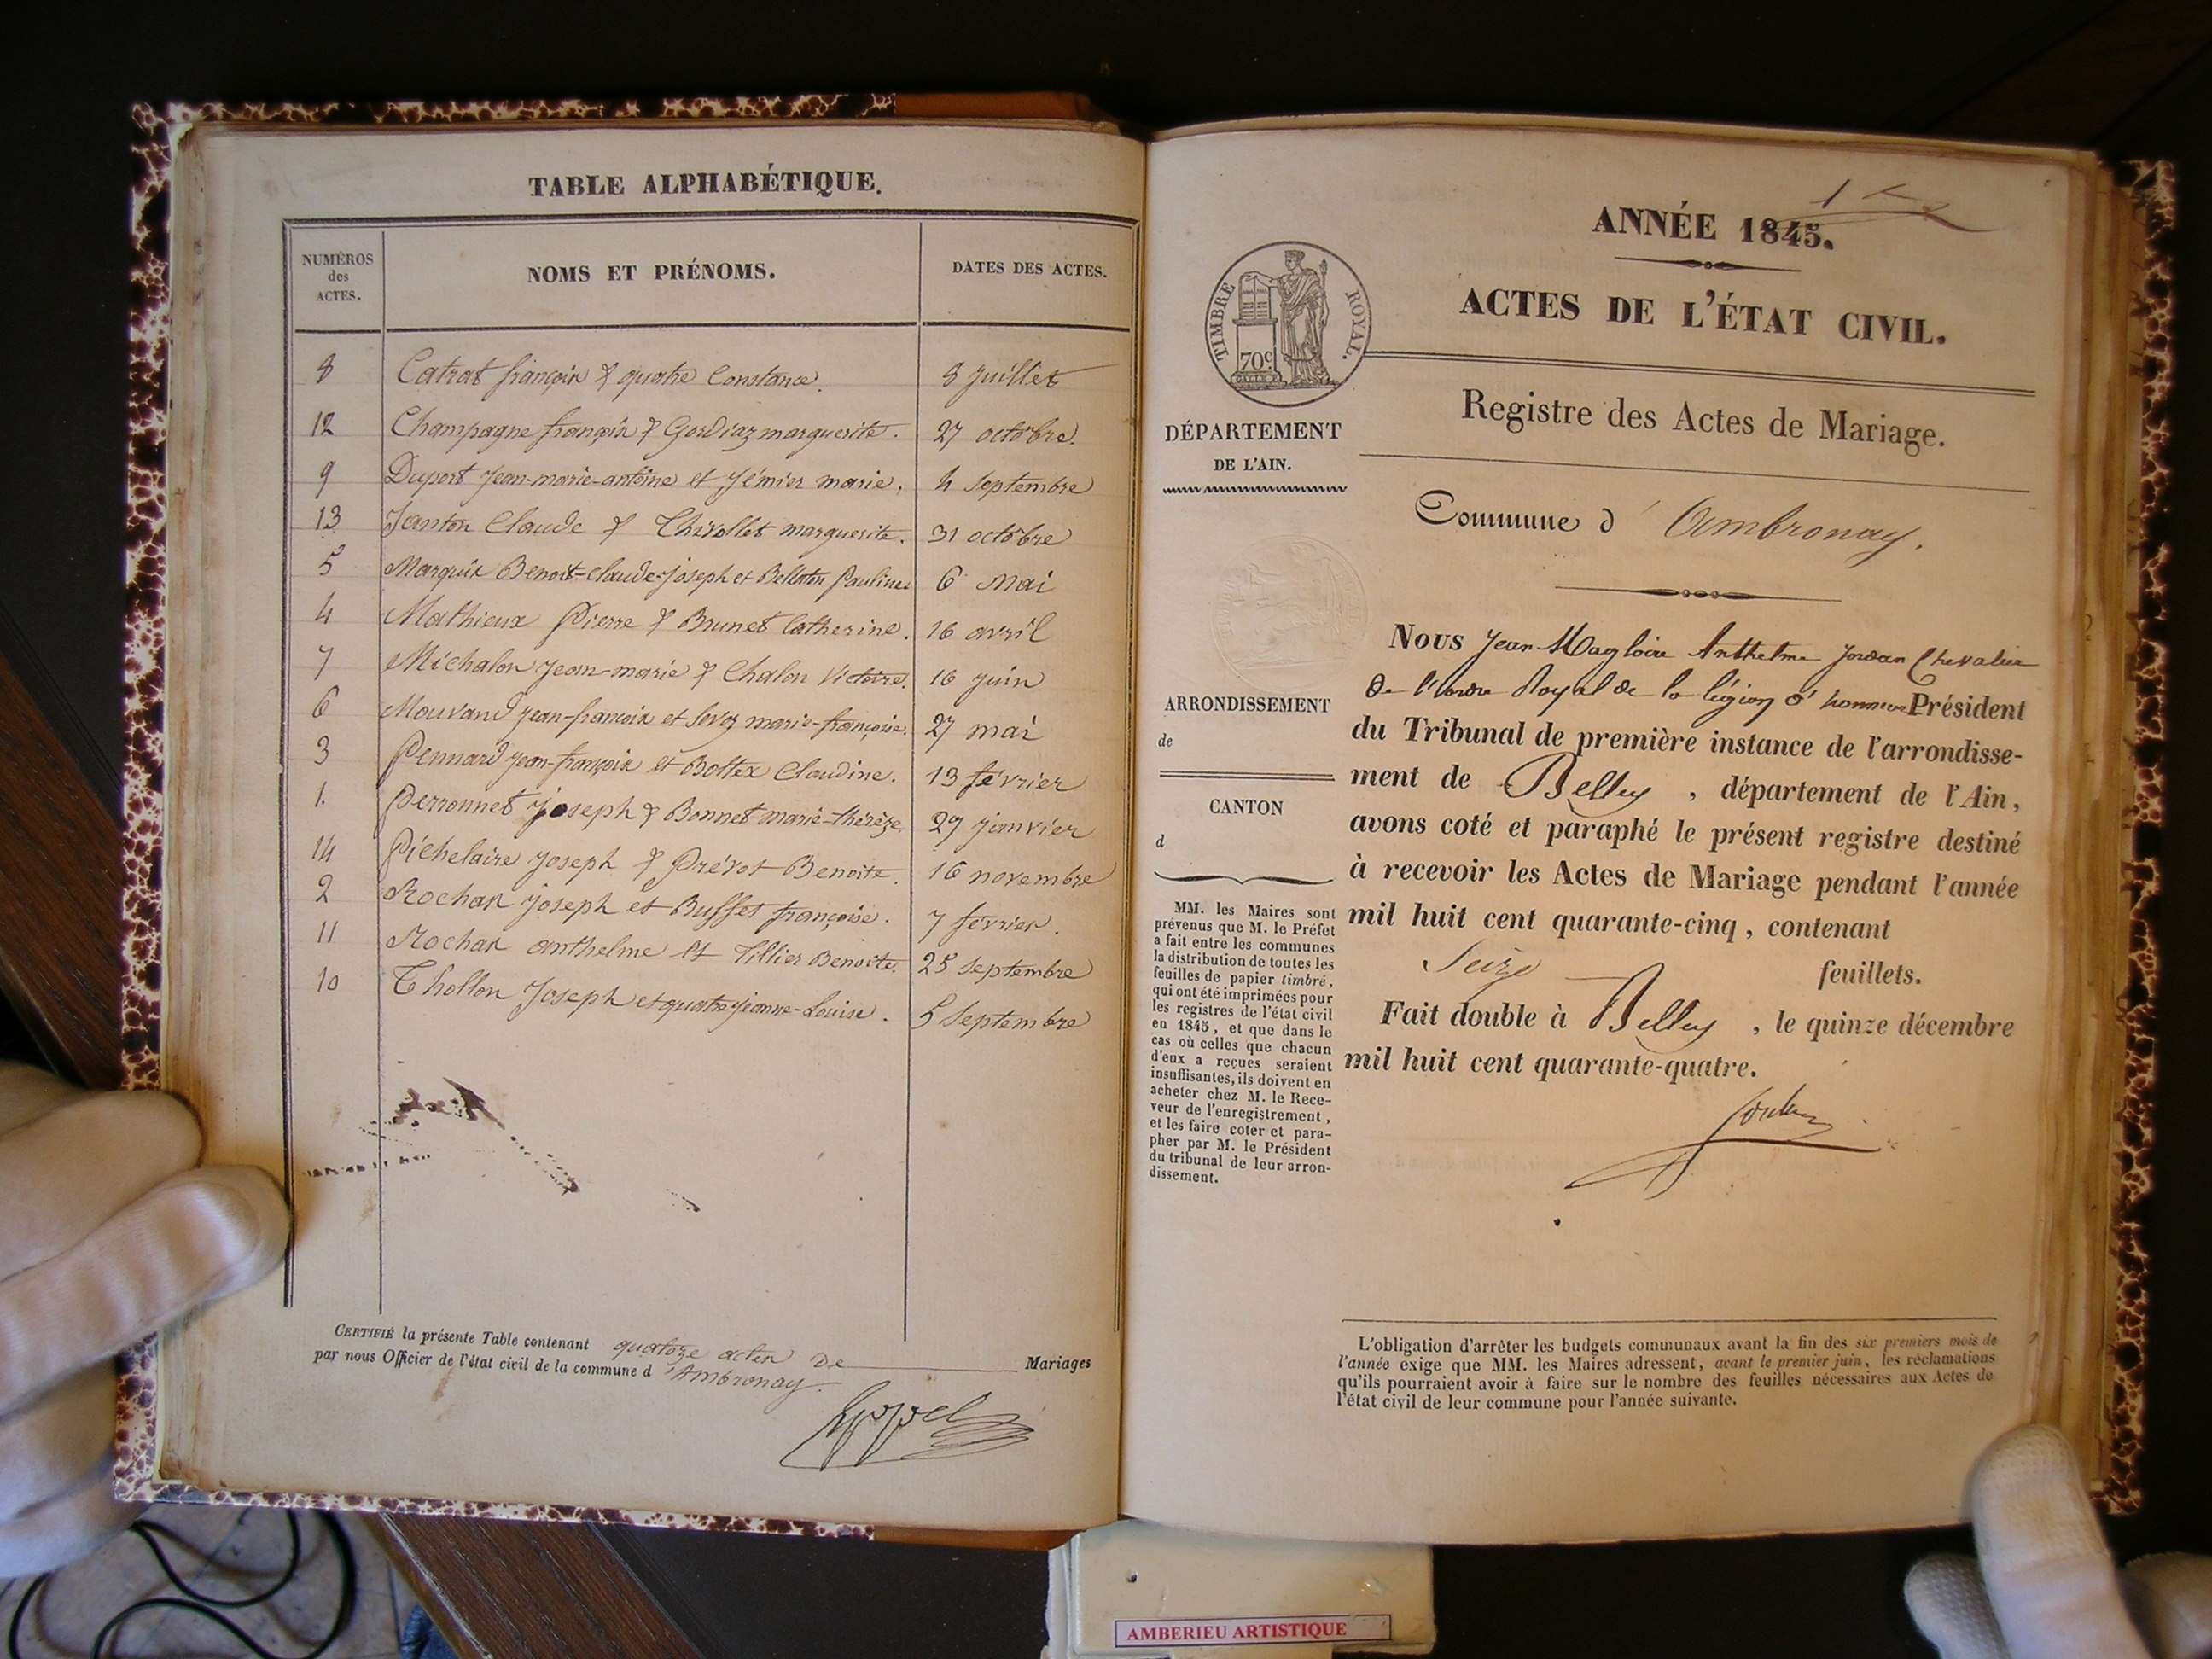 TABLE ALPHABÉTIQUE.
NUMÉROS
des
ACTES.
NOMS ET PRÉNOMS.
DATES DES ACTES.
8 Catrat françois & quatre Constance. 8 juillet
12 Champagne françois & Gordiaz marguerite. 27 octobre.
9 Duport Jean-marie-antoine et Jémier marie, 4 Septembre
13 Janton Claude & Thevollet marguerite. 31 octobre
5 Marquis Benoit-Claude-joseph et Bellaton Pauline. 6 mai
4 Mathieux Pierre & Brunet Catherine. 16 avril
7 Michalon Jean-marie & Chalon Victoire. 16 juin
6 Mouvand jean-francois et Servoz marie-françoise. 27 mai
3 Pennard jean-françois et Bottex Claudine. 13 février
1. Perronnet joseph & Bonnet marie-thérèze. 29 janvier
14 Pichelaire joseph & Prévot Benoite. 16 novembre
2 Rochas joseph et Buffet françoise. 7 février.
11 Rochas anthelme et Tillier Benoite. 25 Septembre
10 Thollon Joseph et quatre jeanne-Louise. 5 Septembre
CERTIFIÉ la présente Table contenant quatorze actes de Mariages
par nous Officier de l'état civil de la commune d'Ambronay.
ANNÉE 1845.
ACTES DE L'ÉTAT CIVIL.
TIMBRE ROYAL.
70c
DÉPARTEMENT
DE L'AIN.
Registre des Actes de Mariage.
Commune d'Ambronay.
Nous Jean Magloire Anthelme Jordan Chevalier
de l'ordre Royal de la légion d'honneur Président
du Tribunal de première instance de l'arrondisse-
ment de Belley, département de l'Ain,
avons coté et paraphé le présent registre destiné
à recevoir les Actes de Mariage pendant l'année
mil huit cent quarante-cinq, contenant
Seize feuillets.
Fait double à Belley, le quinze décembre
mil huit cent quarante-quatre.
Jordan
ARRONDISSEMENT
de
CANTON
d
MM. les Maires sont
prévenus que M. le Préfet
a fait entre les communes
la distribution de toutes les
feuilles de papier timbré,
qui ont été imprimées pour
les registres de l'état civil
en 1845, et que dans le
cas où celles que chacun
d'eux a reçues seraient
insuffisantes, ils doivent en
acheter chez M. le Rece-
veur de l'enregistrement,
et les faire coter et para-
pher par M. le Président
du tribunal de leur arron-
dissement.
L'obligation d'arrêter les budgets communaux avant la fin des six premiers mois de
l'année exige que MM. les Maires adressent, avant le premier juin, les réclamations
qu'ils pourraient avoir à faire sur le nombre des feuilles nécessaires aux Actes de
l'état civil de leur commune pour l'année suivante.
AMBERIEU ARTISTIQUE